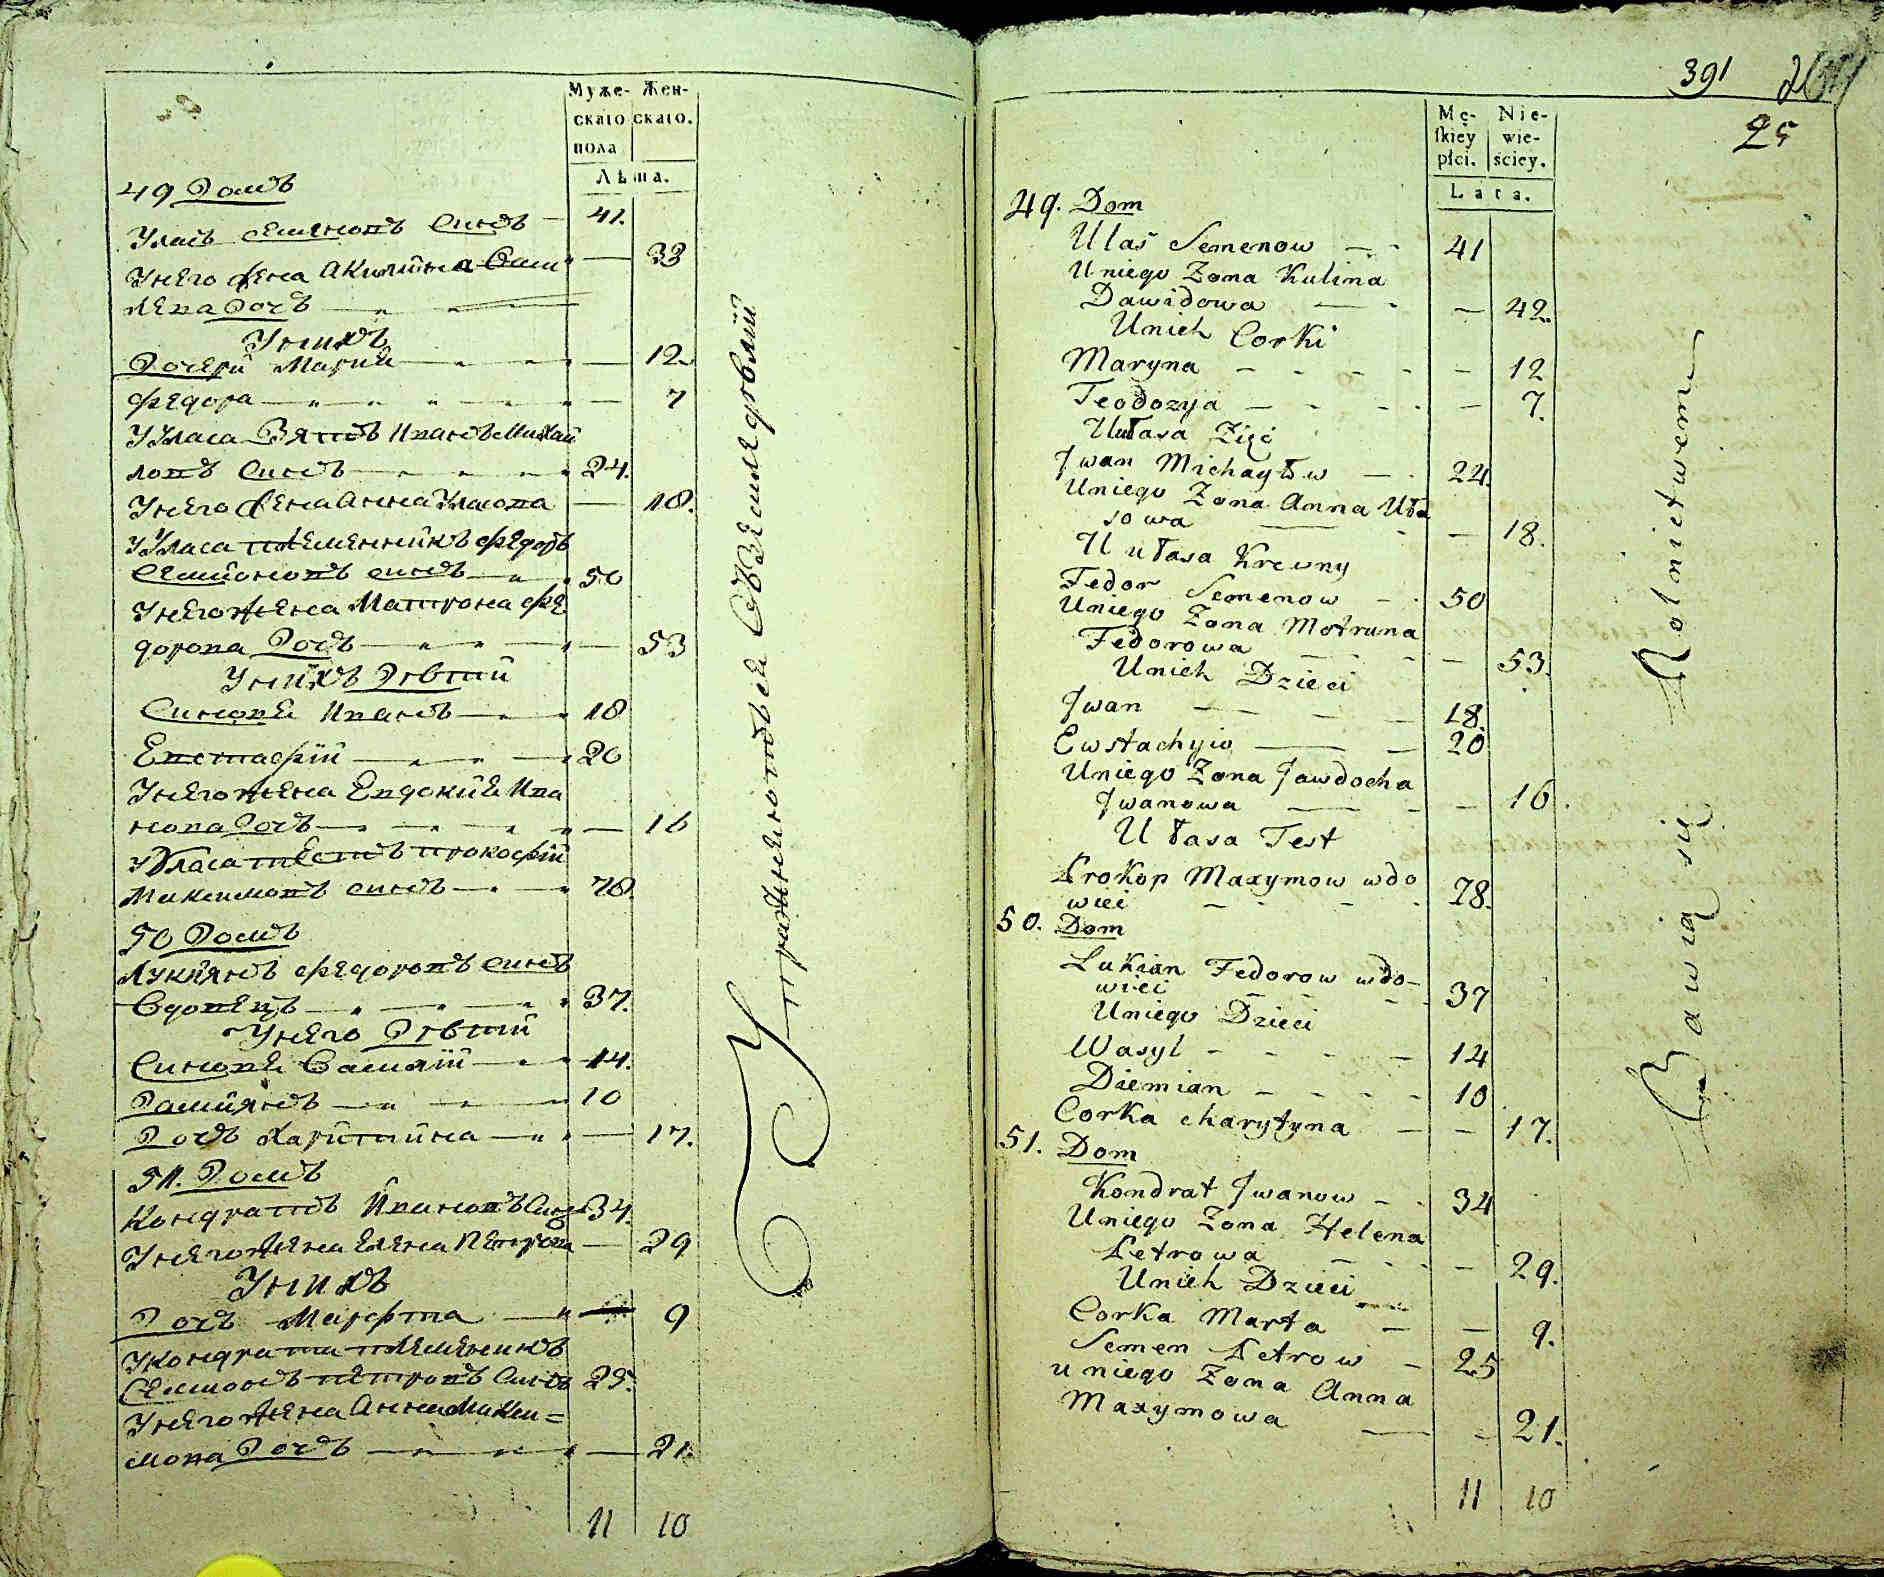 Муже-
скаго
пола
Жен-
скаго.
Лѣта.
49 Домъ
Уласъ Семеновъ Синъ — 41.
Унего жена Акилина Васи — 38
лева Дочъ
Унихъ
Дочери Мария — 12.
Федора — 7
У Уласа Зять Иванъ Михай
ловъ Синъ — 24.
Унего жена Анна Уласова — 18.
У Уласа племенникъ Федоръ
Семионовъ синъ — 50
Унего жена Матрона Фе
дорова Дочъ — 53
Унихъ Дѣти
Синове Иванъ — 18
Евстафiй — 20
Унего жена Евдокия Ива
нова Дочъ — 16
У Власа тесть Прокофiй
Максимовъ синъ — 78.
50 Домъ
Лукиянъ Федоровъ синъ
Вдовецъ — 37.
Унего Дѣти
Синове Василiй — 14.
Дамиянъ — 10
Дочъ Харитина — 17.
51. Домъ
Кондратъ Ивановъ Синъ 34.
Унего жена Елена Петрова — 29
Унихъ
Дочъ Марфта — 9
У Кондрата племеникъ
Семионъ Петровъ Синъ 25.
Унего жена Анна Макси=
мова Дочъ — 21.
11 10
Упражняются Овземледѣлiи
391
25
Mę-
skiey
płci.
Nie-
wie-
ściey.
Lata.
49. Dom
Ułaś Semenow — 41
Uniego Zona Kulina
Dawidowa — 42.
Unich Corki
Maryna — 12
Teodozya — 7.
Uułasa Zięć
Jwan Michayłow — 24.
Uniego Zona Anna Uła
sowa — 18.
U ułasa Krewny
Fedor Semenow — 50
Uniego Zona Motruna
Fedorowa — 53.
Unich Dzieci
Jwan — 18.
Ewstachyiv — 20
Uniego Zona Jawdocha
Jwanowa — 16.
U łasa Test
Prokop Maxymow wdo
wiec — 78.
50. Dom
Lukian Fedorow wdo-
wiec — 37
Uniego Dzieci
Wasyl — 14
Diemian — 10
Corka charytyna — 17.
51. Dom
Kondrat Jwanow — 34
Uniego Zona Helena
Petrowa — 29.
Unich Dzieci
Corka Marta — 9.
Semen Petrow — 25
uniego Zona Anna
Maxymowa — 21.
11 10
Bawią się Rolnictwem